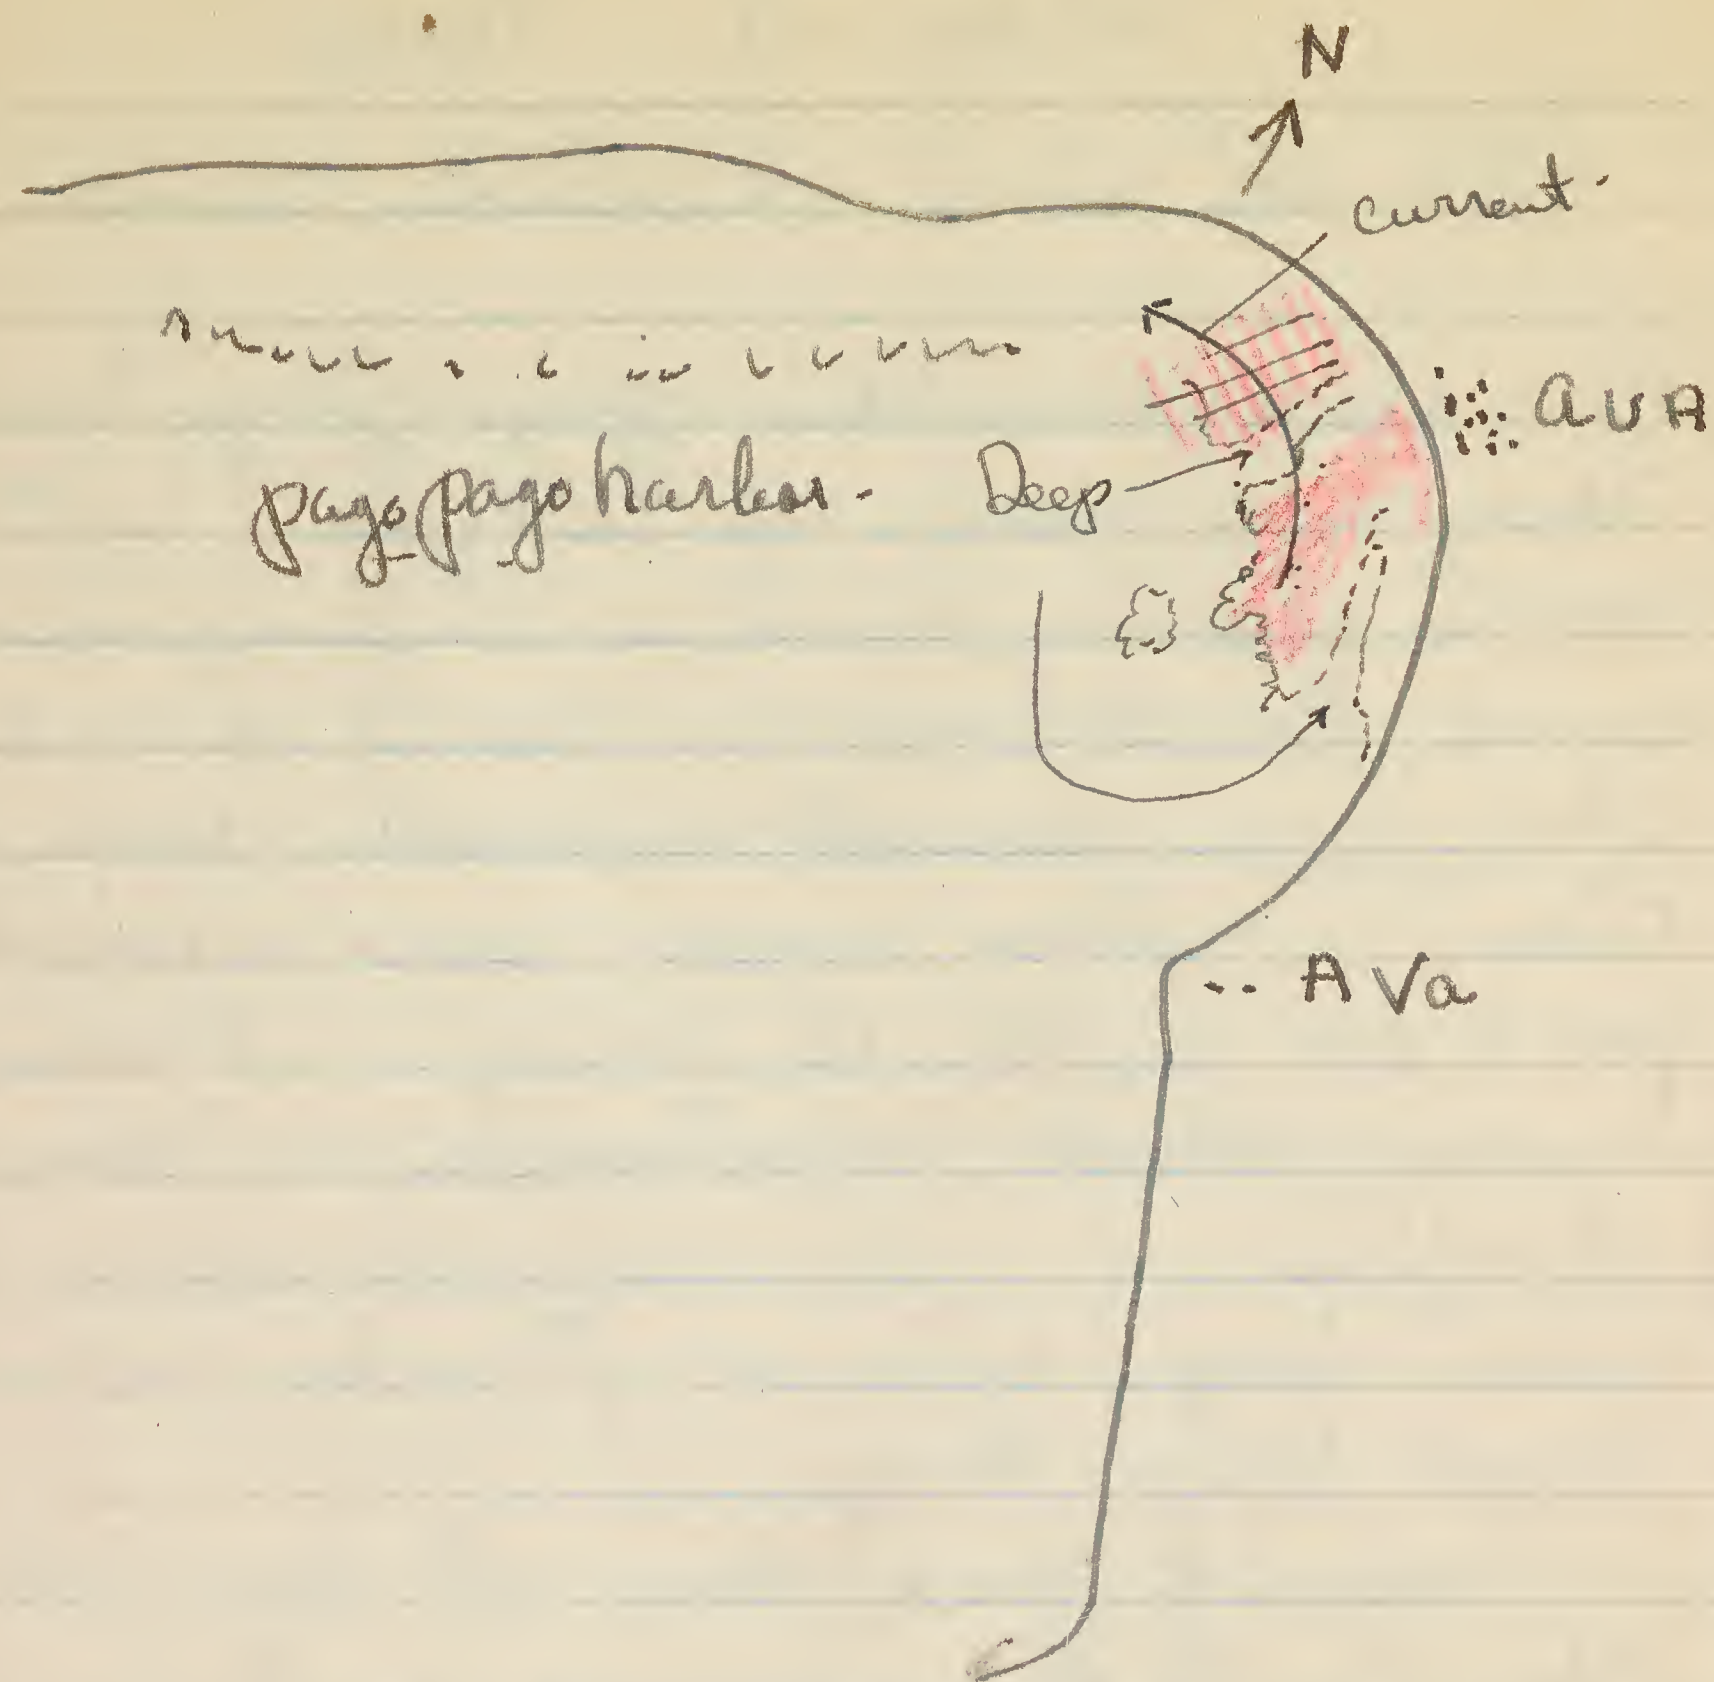 N
current.
aUA
pago pago harbor.
Deep
AVa